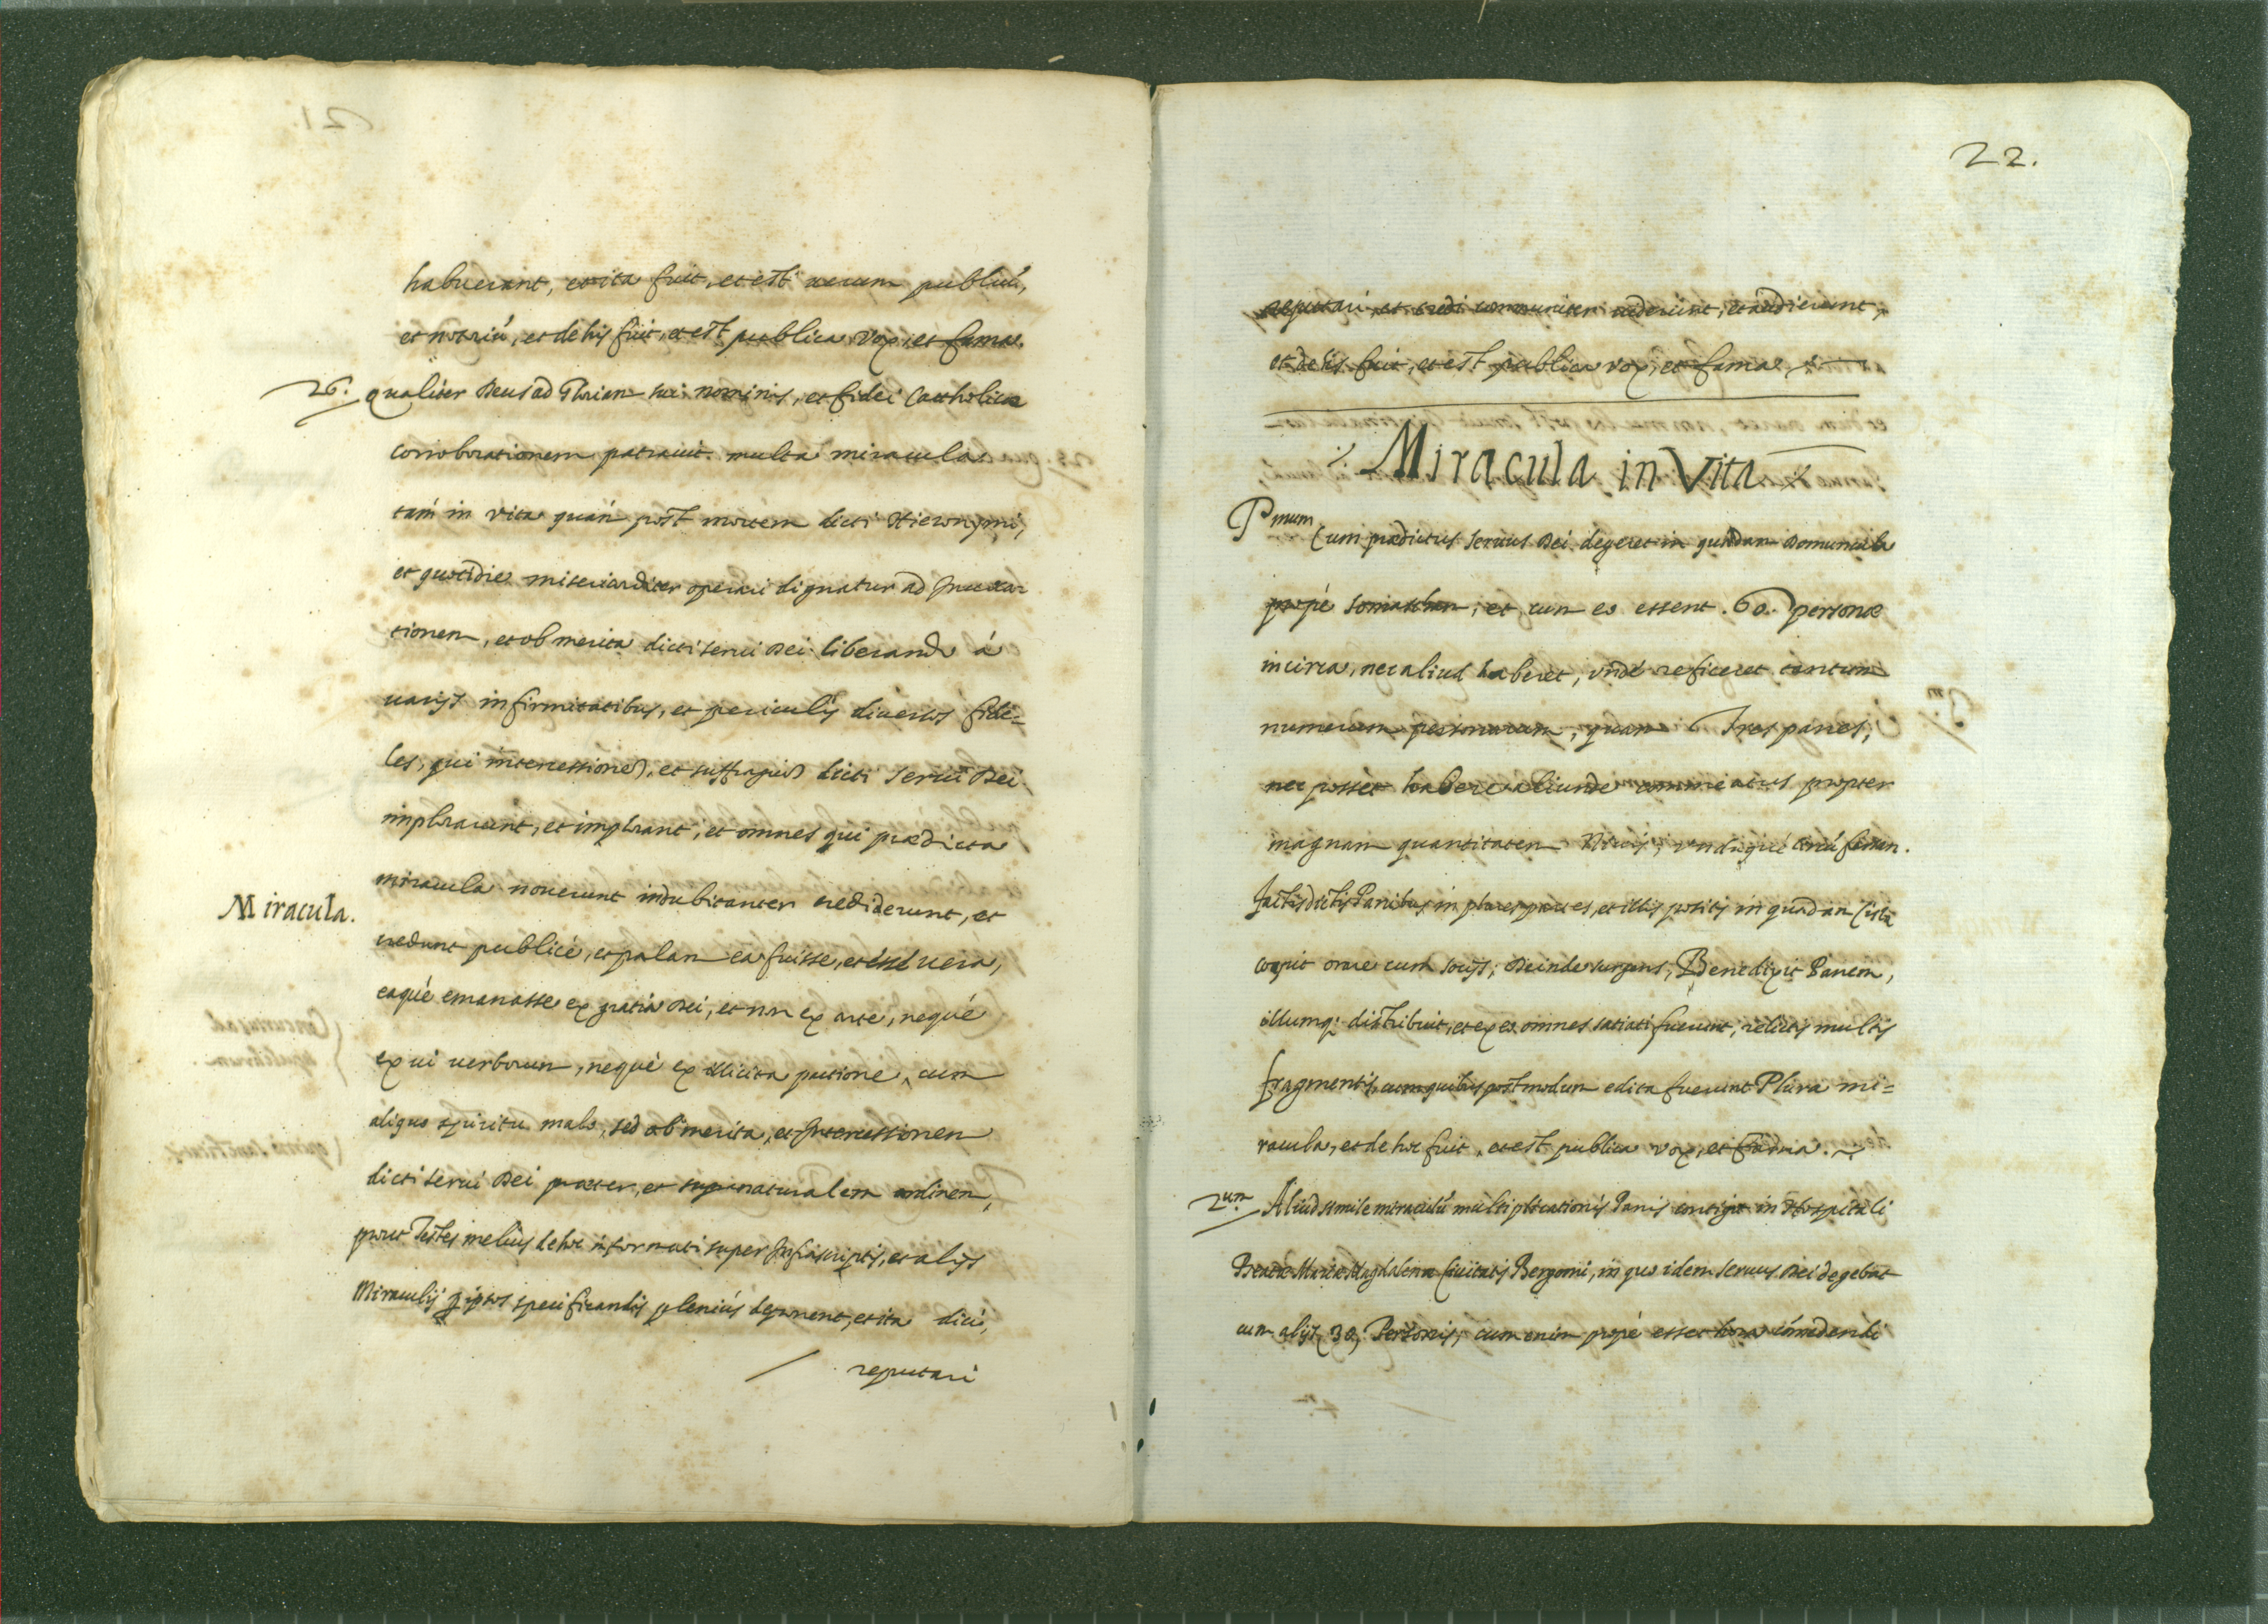 habuerant, et ita fuit, et est uerum publicú,
et notoriú, et de his fuit, et est publica vox, et fama.
26. qualiter Deus ad Gloriam sui nominis, et fidei Catholicæ
corroborationem patrauit multa miracula
tám in vita quám post mortem dicti Hieronymi,
et quotidie misericorditer operari dignatur ad Inuoca=
tionem, et ob merita dicti serui Dei liberando á
uarijs infirmitatibus, et periculis diuersos fide=
les, qui intercessiones, et suffragia dicti serui Dei
implorarunt, et implorant, et omnes qui prædicta
Miracula.
miracula nouerunt indubitanter crediderunt, et
credunt publicè, et palam ea fuisse, et esse uera,
eaquè emanasse ex gratia Dei, et non ex arte, nequè
ex ui uerborum, nequè ex illicita pactione cum
aliquo spiritu malo, sed ob merita, et Intercessionem
dicti serui Dei præter, et supernaturalem ordinem,
prout Testes melius de hoc informati super Infrascriptis, et alijs
Miraculis p ipsos specificandis pleniús deponent, et ita dici,
reputari
22.
reputari et credi communiter uiderunt, et audierunt,
et de his fuit, et est publica vox, et fama
Miracula in Vita
Pmum Cum prædictus seruus Dei degeret in quadam Domuncula
propè Somascham, et cum eo essent .60. personæ
incirca, nec aliud haberet, vndè reficeret tantum
numerum personarum, quam Tres panes,
nec posset habere aliunde commeatus propter
magnam quantitatem Niuis, vndiquè
factis dictis Panibus in plures partes, et illis positis in quadam Cista
cœpit orare cum socijs; Deinde surgens, Benedixit Panem,
illumq; distribuit, et ex eo omnes satiati fuerunt, relictis multis
fragmentis, cum quibus postmodum edita fuerunt Plura mi=
racula, et de hoc fuit, et est publica vox, et fama.
2um Aliud simile miraculú multiplicationis Panis contigit in Hospitali
Beatæ Mariæ Magdalenæ Ciuitatis Bergomi, in quo idem seruus Dei degebat
cum alijs 30. Personis, cum enim propè esset hora cómedendi